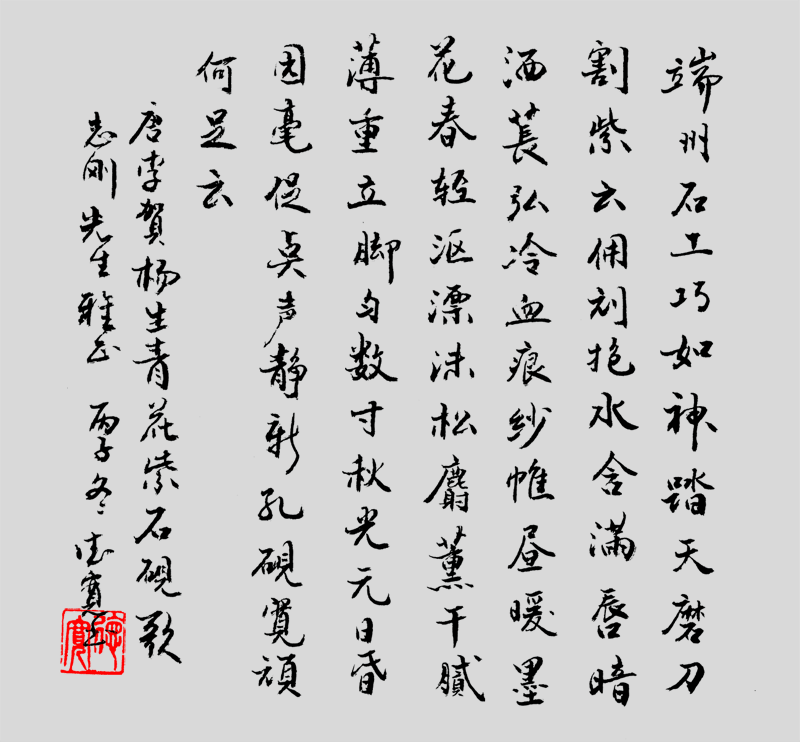 端州石工巧如神踏天磨刀
割紫云佣刓抱水含满唇暗
洒苌弘冷血痕纱帷昼暖墨
花春轻沤漂沫松麝薰干腻
薄重立脚匀数寸秋光无日昏
圆毫促点声静新孔砚宽顽
何足云
唐李贺杨生青花紫石砚歌
志刚先生雅正 丙子冬 德宝